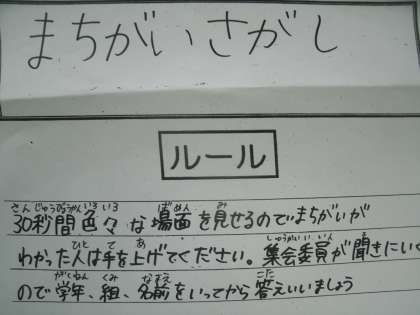 まちがいさがし
ルール
30秒間色々な場面を見せるのでまちがいが
わかった人は手を上げてください。集会委員が聞きにいく
ので学年、組、名前をいってから答えいいましょう